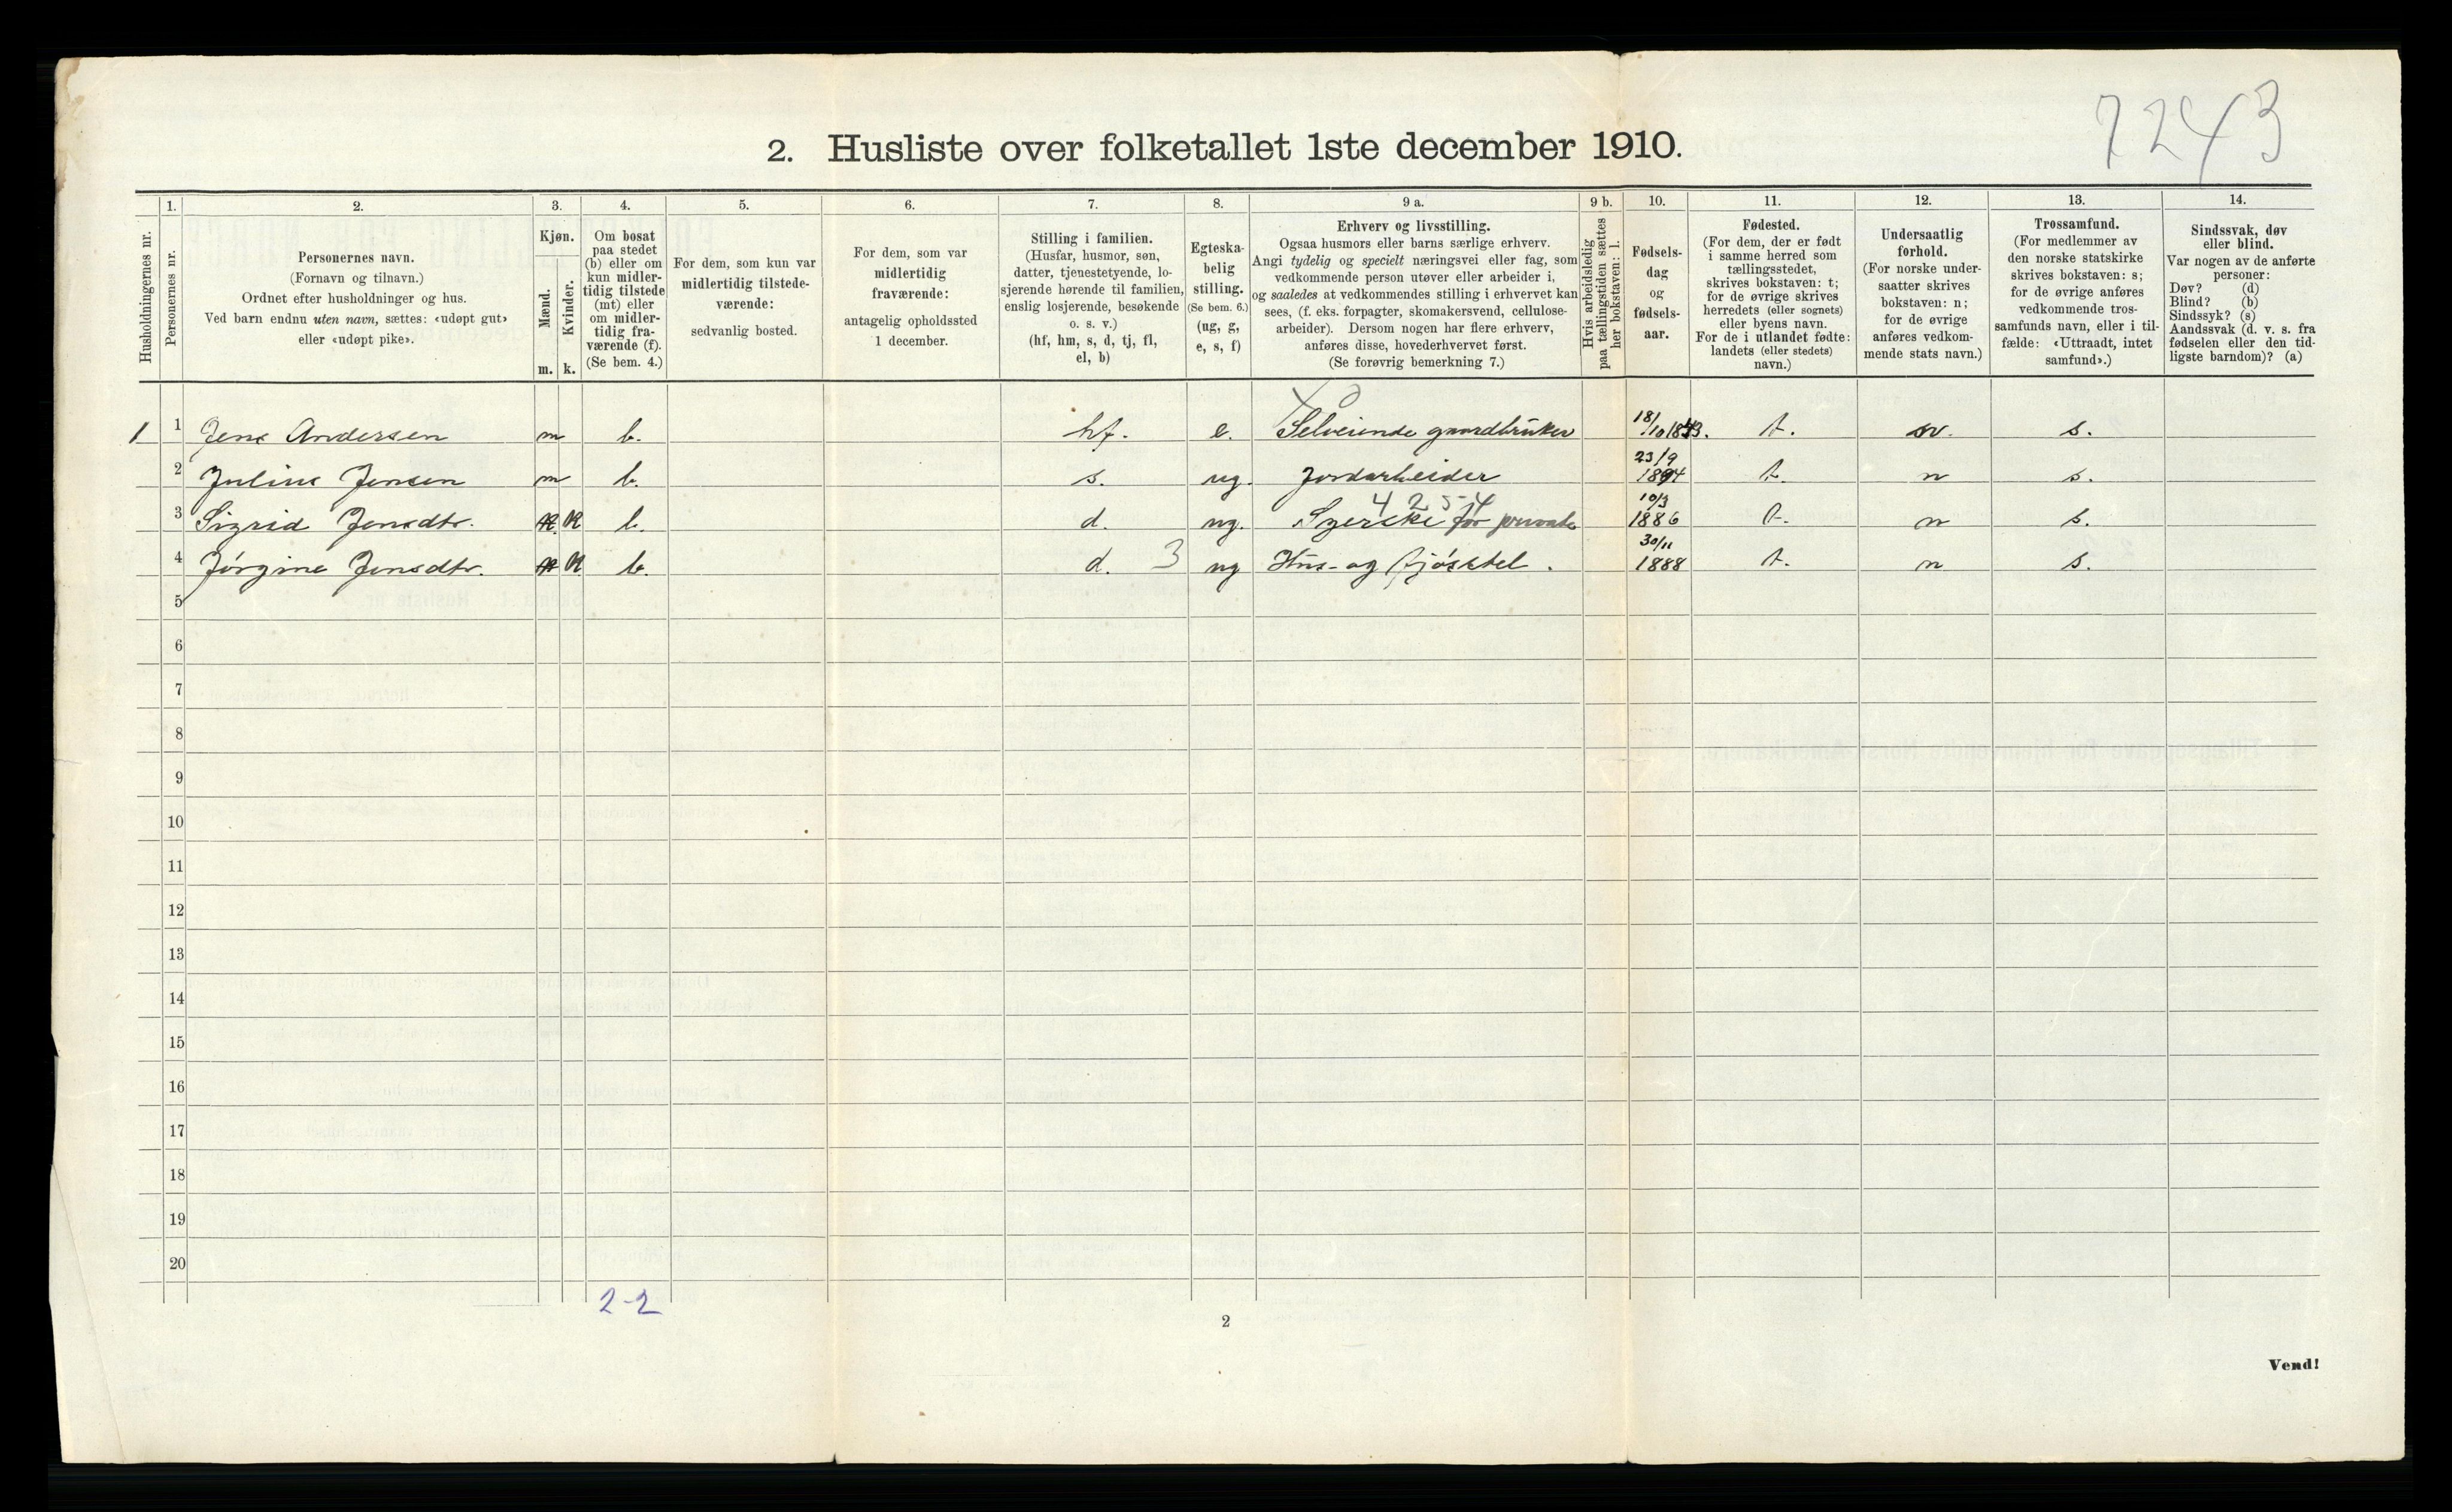 7243
2. Husliste over folketallet 1ste december 1910.
Husholdningernes nr.
1.
Personernes nr.
2.
Personernes navn.
(Fornavn og tilnavn.)
Ordnet efter husholdninger og hus.
Ved barn endnu uten navn, sættes: «udøpt gut»
eller «udøpt pike».
3.
Kjøn.
Mænd.
Kvinder.
m. k.
4.
Om bosat
paa stedet
(b) eller om
kun midler-
tidig tilstede
(mt) eller
om midler-
tidig fra-
værende (f).
(Se bem. 4.)
5.
For dem, som kun var
midlertidig tilstede-
værende:
sedvanlig bosted.
6.
For dem, som var
midlertidig
fraværende:
antagelig opholdssted
1 december.
7.
Stilling i familien.
(Husfar, husmor, søn,
datter, tjenestetyende, lo-
sjerende hørende til familien,
enslig losjerende, besøkende
o. s. v.)
(hf, hm, s, d, tj, fl,
el, b)
8.
Egteska-
belig
stilling.
(Se bem. 6.)
(ug, g,
e, s, f)
9 a.
Erhverv og livsstilling.
Ogsaa husmors eller barns særlige erhverv.
Angi tydelig og specielt næringsvei eller fag, som
vedkommende person utøver eller arbeider i,
og saaledes at vedkommendes stilling i erhvervet kan
sees, (f. eks. forpagter, skomakersvend, cellulose-
arbeider). Dersom nogen har flere erhverv,
anføres disse, hovederhvervet først.
(Se forøvrig bemerkning 7.)
9 b.
Hvis arbeidsledig
paa tællingstiden sættes
her bokstaven: l.
10.
Fødsels-
dag
og
fødsels-
aar.
11.
Fødested.
(For dem, der er født
i samme herred som
tællingsstedet,
skrives bokstaven: t;
for de øvrige skrives
herredets (eller sognets)
eller byens navn.
For de i utlandet fødte:
landets (eller stedets)
navn.)
12.
Undersaatlig
forhold.
(For norske under-
saatter skrives
bokstaven: n;
for de øvrige
anføres vedkom-
mende stats navn.)
13.
Trossamfund.
(For medlemmer av
den norske statskirke
skrives bokstaven: s;
for de øvrige anføres
vedkommende tros-
samfunds navn, eller i til-
fælde: «Uttraadt, intet
samfund».)
14.
Sindssvak, døv
eller blind.
Var nogen av de anførte
personer:
Døv? (d)
Blind? (b)
Sindssyk? (s)
Aandssvak (d. v. s. fra
fødselen eller den tid-
ligste barndom)? (a)
1 1 Jens Andersen m b. hf. e. Selveiende gaardbruker 18/10 1843. t. s.
2 Julius Jensen m b. s. ug. Jordarbeider 23/9 1894 t. n s.
3 Sigrid Jensdtr. K b. d. ug. Syerske for private 4254 10/3 1886 t. n s.
4 Jørgine Jensdtr. K b. d. 3 ug Hus- og fjøsstel. 30/11 1888 t. n s.
5
6
7
8
9
10
11
12
13
14
15
16
17
18
19
20
2-2
2
Vend!